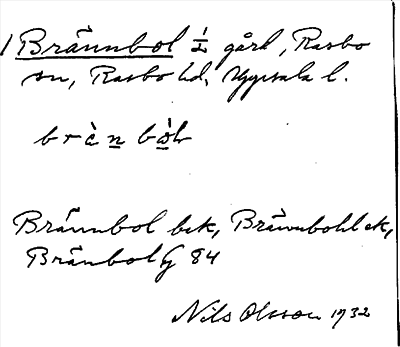 1 Brännbol ½ gård, Rasbo
sn, Rasbo hd, Uppsala l.
bràn bòl
Brännbol bsk, Bränbohl ek,
Bränbol G 84
Nils Olsson 1932